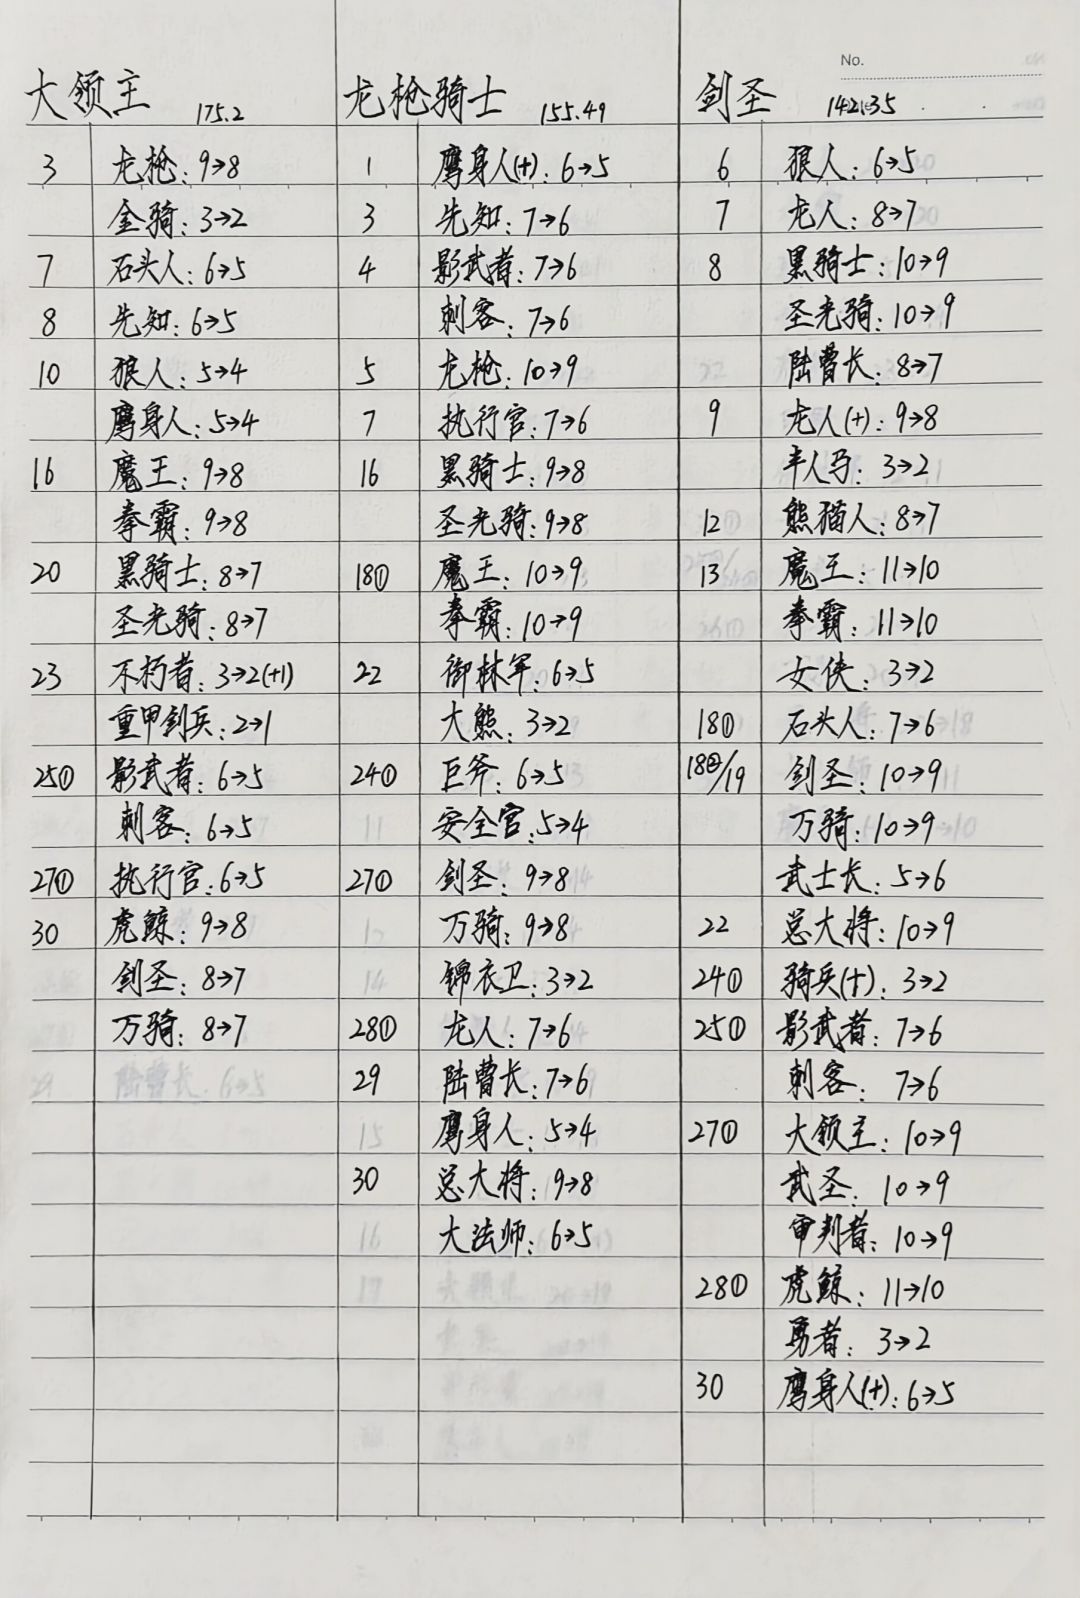 No.
大领主 175.2
3 龙枪：9→8
金骑：3→2
7 石头人：6→5
8 先知：6→5
10 狼人：5→4
鹰身人：5→4
16 魔王：9→8
拳霸：9→8
20 黑骑士：8→7
圣光骑：8→7
23 不朽者：3→2(+1)
重甲剑兵：2→1
25① 影武者：6→5
刺客：6→5
27① 执行官：6→5
30 虎鲸：9→8
剑圣：8→7
万骑：8→7
龙枪骑士 155.49
1 鹰身人(+)：6→5
3 先知：7→6
4 影武者：7→6
刺客：7→6
5 龙枪：10→9
7 执行官：7→6
16 黑骑士：9→8
圣光骑：9→8
18① 魔王：10→9
拳霸：10→9
22 御林军：6→5
大熊：3→2
24① 巨斧：6→5
安全官：5→4
27① 剑圣：9→8
万骑：9→8
锦衣卫：3→2
28① 龙人：7→6
29 陆曹长：7→6
鹰身人：5→4
30 总大将：9→8
大法师：6→5
剑圣 142.35
6 狼人：6→5
7 龙人：8→7
8 黑骑士：10→9
圣光骑：10→9
陆曹长：8→7
9 龙人(+)：9→8
半人马：3→2
12 熊猫人：8→7
13 魔王：11→10
拳霸：11→10
女侠：3→2
18① 石头人：7→6
18②/19 剑圣：10→9
万骑：10→9
武士长：5→6
22 总大将：10→9
24① 骑兵(+)：3→2
25① 影武者：7→6
刺客：7→6
27① 大领主：10→9
武圣：10→9
审判者：10→9
28① 虎鲸：11→10
勇者：3→2
30 鹰身人(+)：6→5